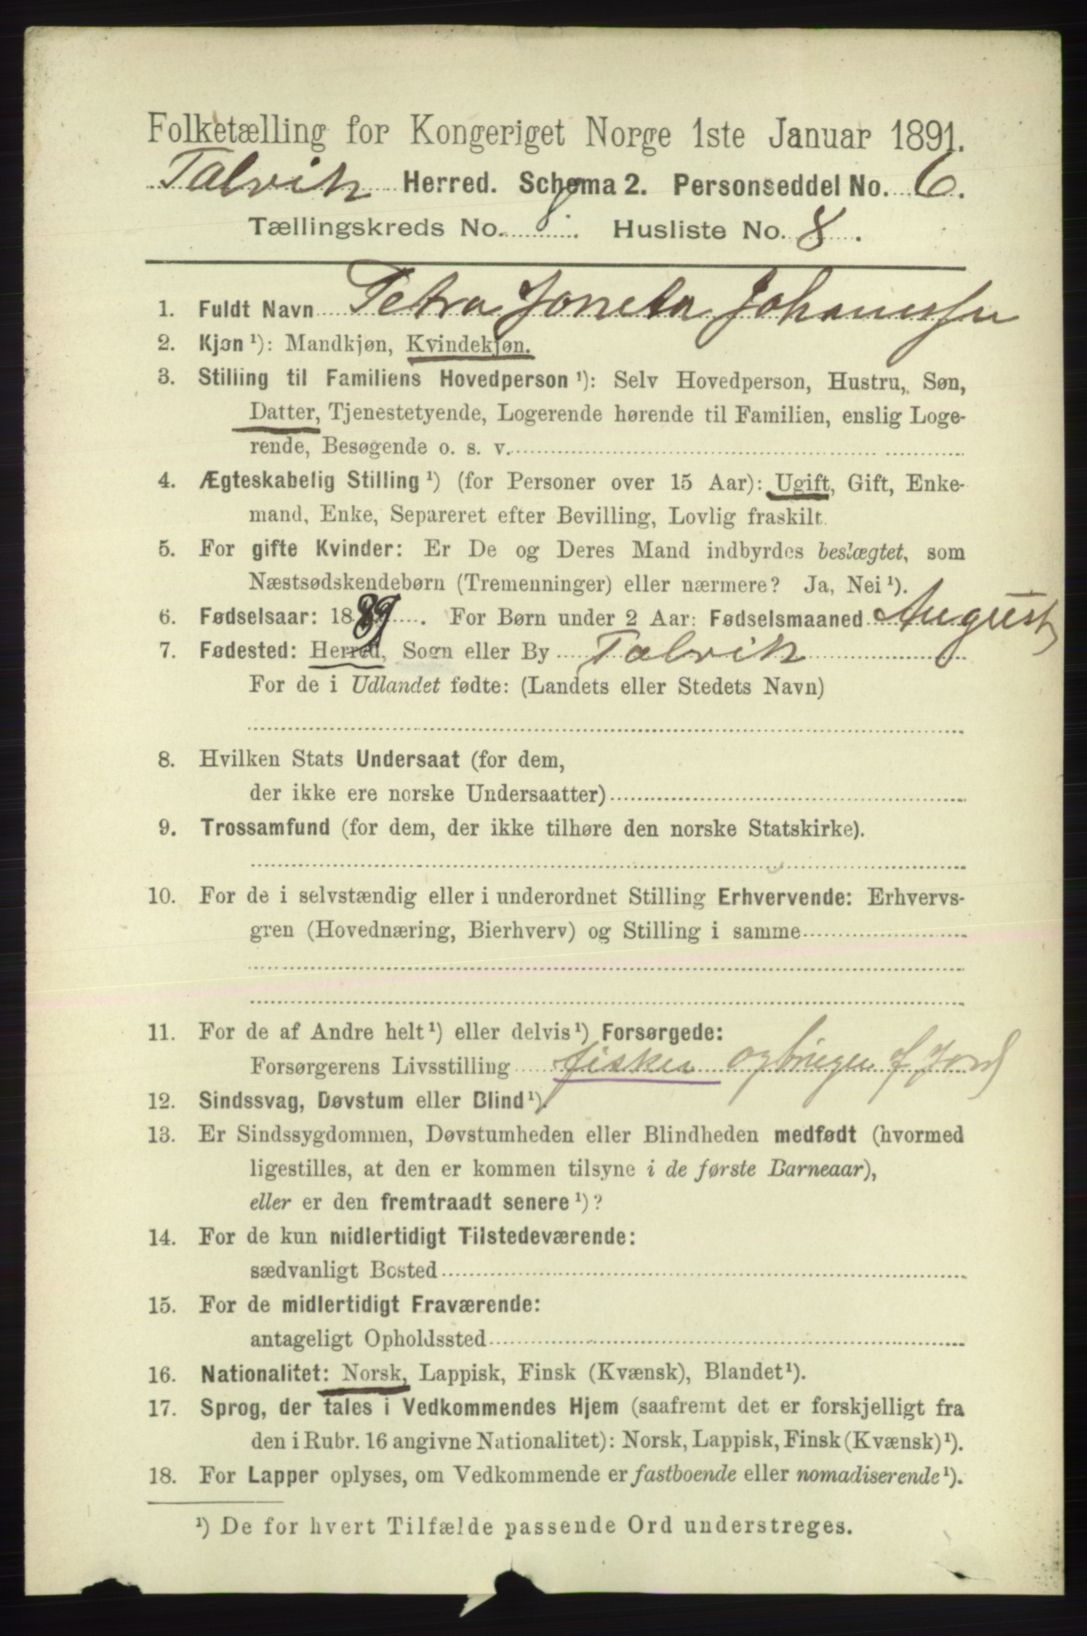 Folketælling for Kongeriget Norge 1ste Januar 1891.
Talvik Herred. Schema 2. Personseddel No. 6.
Tællingskreds No. 8. Husliste No. 8.
1. Fuldt Navn Petra Joneta Johannessen
2. Kjøn ¹): Mandkjøn, Kvindekjøn.
3. Stilling til Familiens Hovedperson ¹): Selv Hovedperson, Hustru, Søn,
Datter, Tjenestetyende, Logerende hørende til Familien, enslig Loge-
rende, Besøgende o. s. v.
4. Ægteskabelig Stilling ¹) (for Personer over 15 Aar): Ugift, Gift, Enke-
mand, Enke, Separeret efter Bevilling, Lovlig fraskilt.
5. For gifte Kvinder: Er De og Deres Mand indbyrdes beslægtet, som
Næstsødskendebørn (Tremenninger) eller nærmere? Ja, Nei ¹).
6. Fødselsaar: 1889. For Børn under 2 Aar: Fødselsmaaned August
7. Fødested: Herred, Sogn eller By Talvik
For de i Udlandet fødte: (Landets eller Stedets Navn)
8. Hvilken Stats Undersaat (for dem,
der ikke ere norske Undersaatter)
9. Trossamfund (for dem, der ikke tilhøre den norske Statskirke).
10. For de i selvstændig eller i underordnet Stilling Erhvervende: Erhvervs-
gren (Hovednæring, Bierhverv) og Stilling i samme
11. For de af Andre helt ¹) eller delvis ¹) Forsørgede:
Forsørgerens Livsstilling fisker og bruger af Jord
12. Sindssvag, Døvstum eller Blind ¹).
13. Er Sindssygdommen, Døvstumheden eller Blindheden medfødt (hvormed
ligestilles, at den er kommen tilsyne i de første Barneaar),
eller er den fremtraadt senere ¹)?
14. For de kun midlertidigt Tilstedeværende:
sædvanligt Bosted
15. For de midlertidigt Fraværende:
antageligt Opholdssted
16. Nationalitet: Norsk, Lappisk, Finsk (Kvænsk), Blandet ¹).
17. Sprog, der tales i Vedkommendes Hjem (saafremt det er forskjelligt fra
den i Rubr. 16 angivne Nationalitet): Norsk, Lappisk, Finsk (Kvænsk) ¹).
18. For Lapper oplyses, om Vedkommende er fastboende eller nomadiserende ¹).
¹) De for hvert Tilfælde passende Ord understreges.